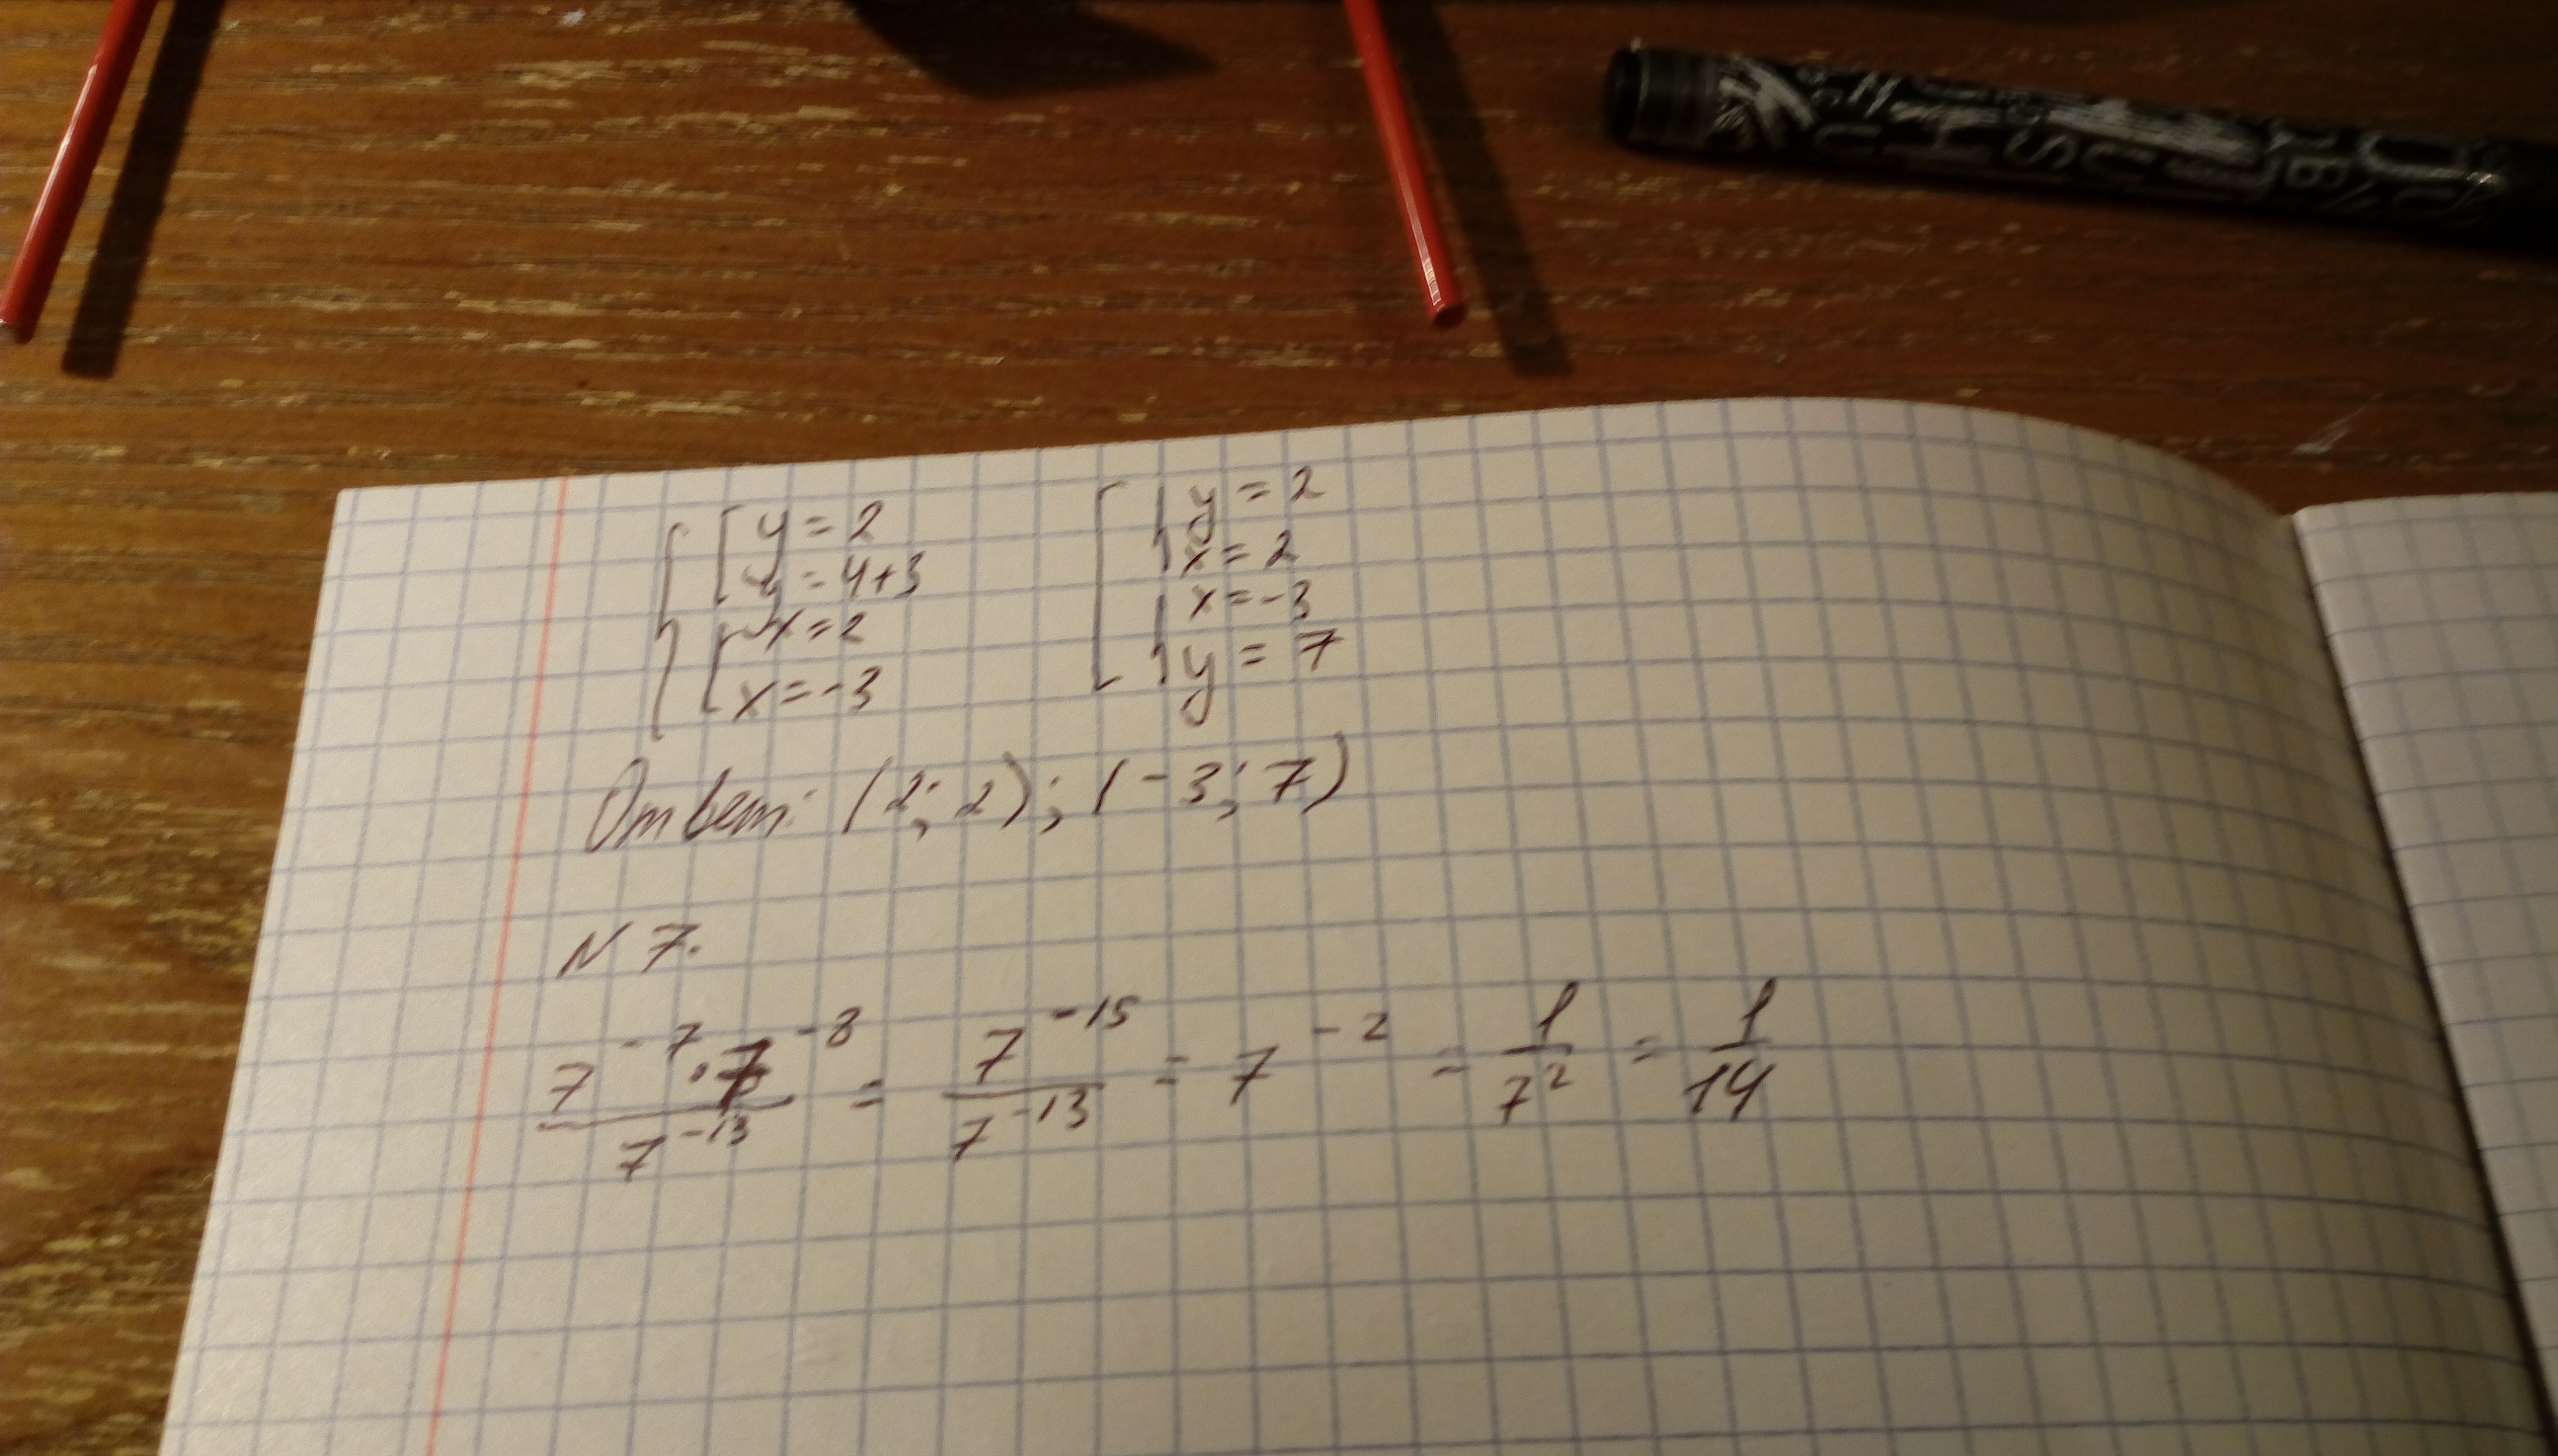 y = 2 y = 2
y = 4+3 x = 2
x = 2 x = -3
x = -3 y = 7
Ответ: (2; 2); (-3; 7)
N 7.
7^-7 · 7^-8 / 7^-13 = 7^-15 / 7^-13 = 7^-2 = 1/7^2 = 1/14